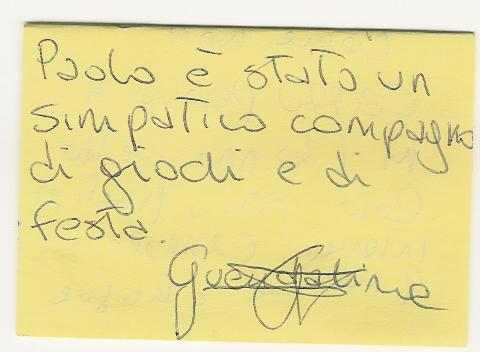 Paolo è stato un
simpatico compagno
di giochi e di
festa.
Guendalina